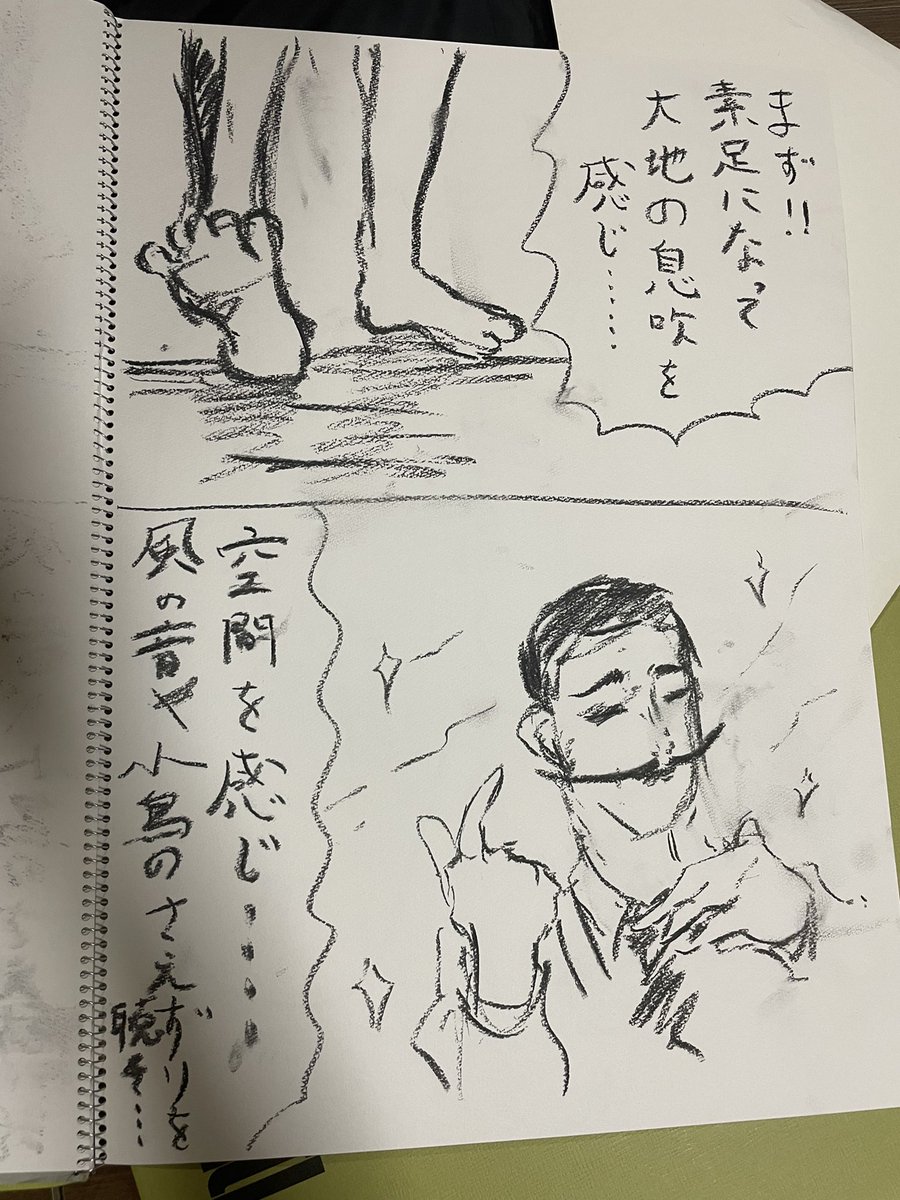 まず!!
素足になって
大地の息吹を
感じ......
空間を感じ.....
風の音や小鳥のさえずりを
聴き....